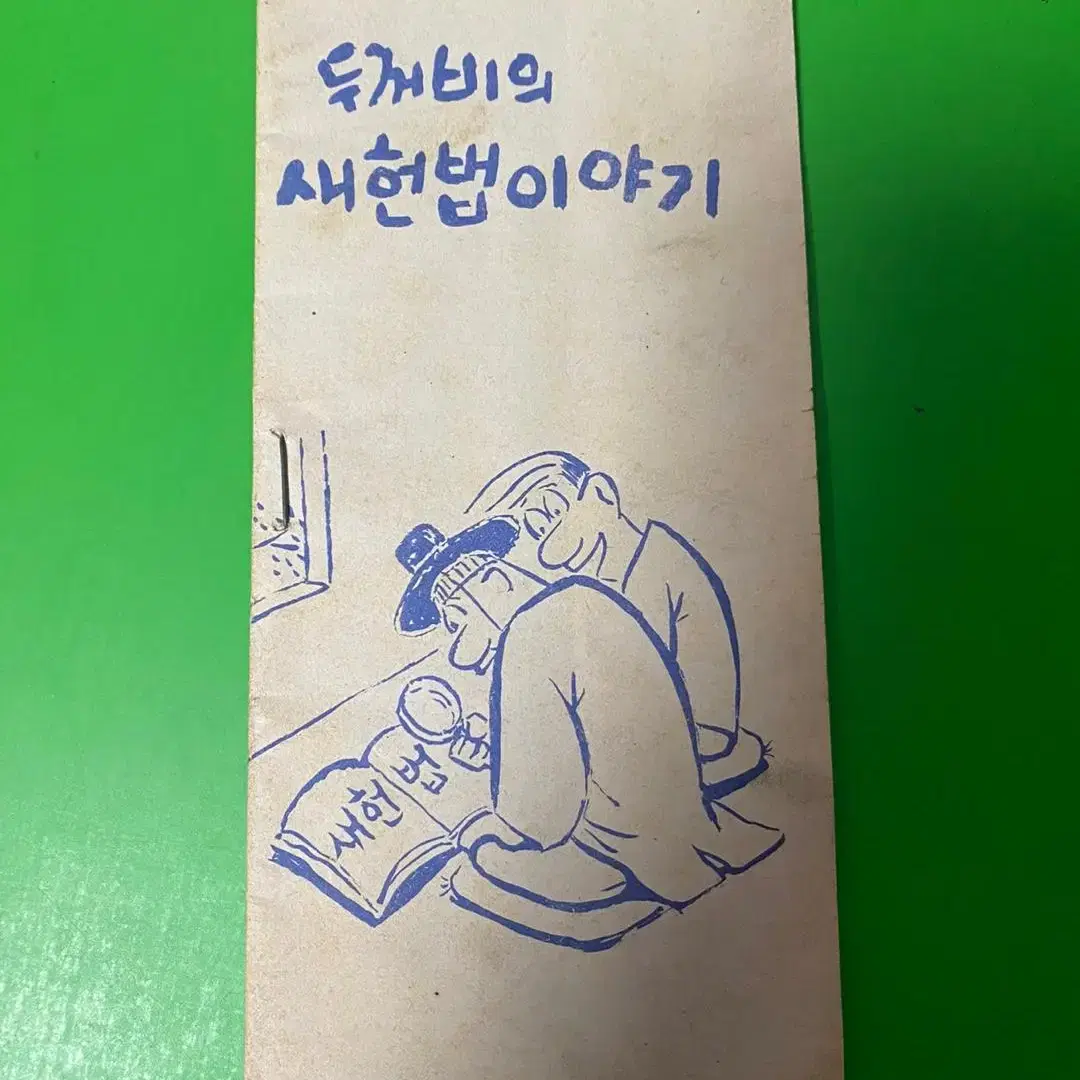 두꺼비의
새헌법이야기
새헌법